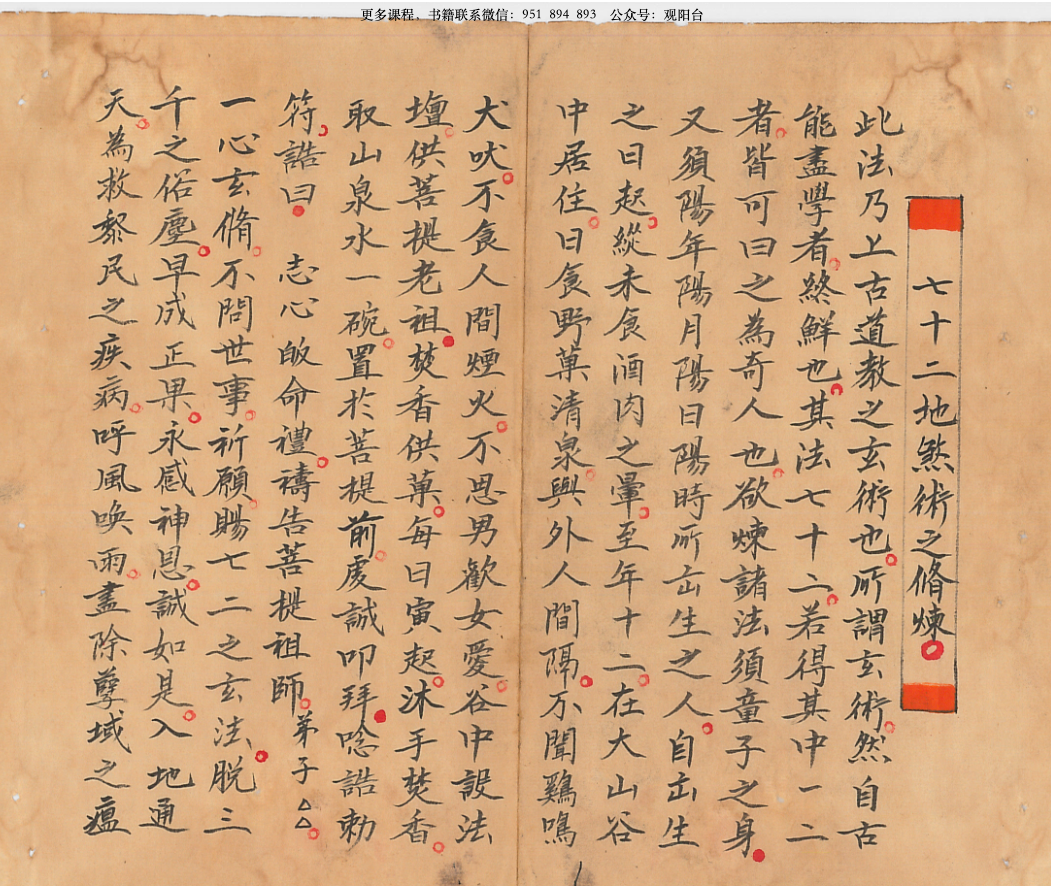 更多课程，书籍联系微信：951 894 893 公众号：观阳台
七十二地煞術之脩煉
此法乃上古道教之玄術也所謂玄術然自古
能盡學者終鮮也其法七十二若得其中一二
者皆可曰之為奇人也欲煉諸法須童子之身
又須陽年陽月陽日陽時所出生之人自出生
之日起縱未食酒肉之葷至年十二在大山谷
中居住日食野菓清泉與外人間隔不聞鷄鳴
犬吠不食人間煙火不思男歡女愛谷中設法
壇供菩提老祖焚香供菓每日寅起沐手焚香
取山泉水一碗置於菩提前虔誠叩拜唸誥勅
符誥曰 志心皈命禮禱告菩提祖師弟子△△
一心玄脩不問世事祈願賜七二之玄法脱三
千之俗塵早成正果永感神恩誠如是入地通
天為救黎民之疾病呼風喚雨盡除孽域之瘟